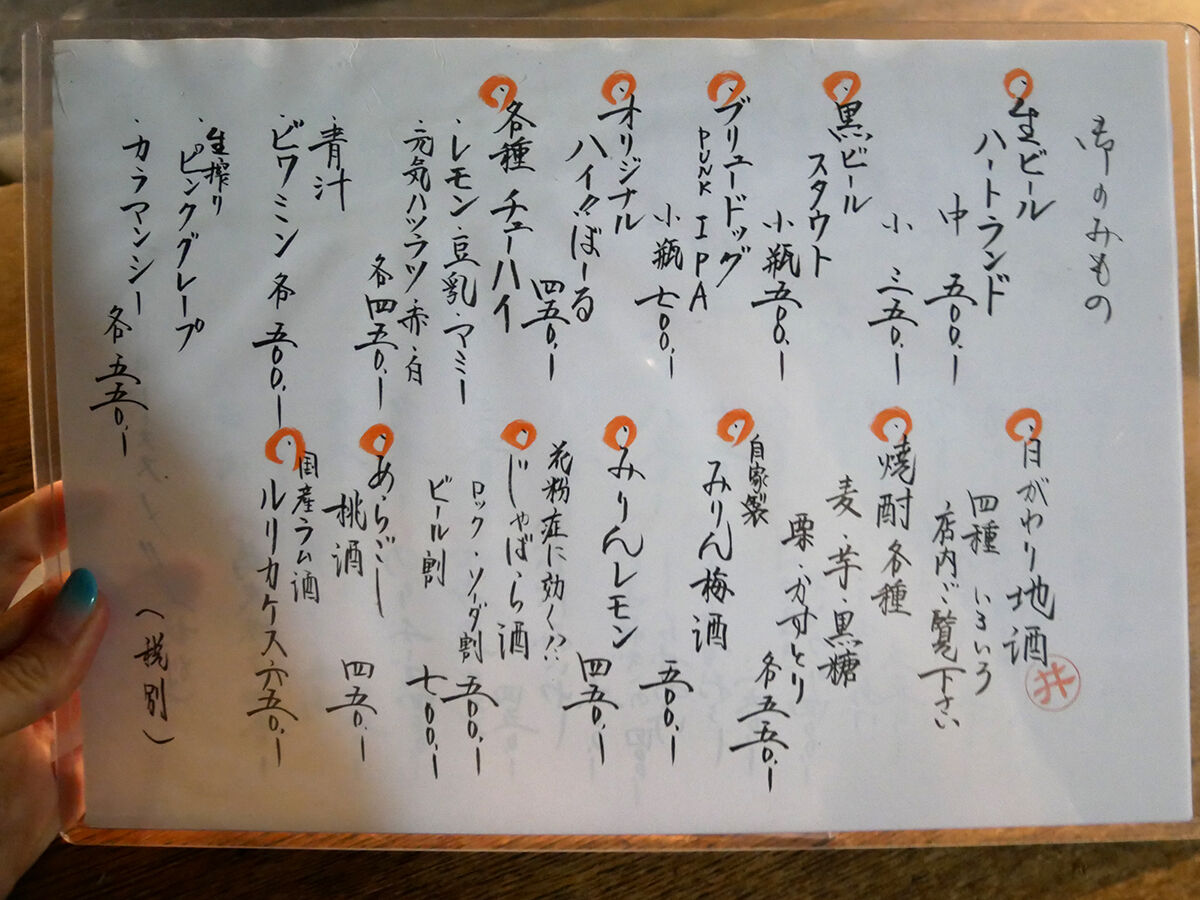 御のみもの
生ビール
ハートランド
中 五〇〇.ー
小 三五〇.ー
黒ビール
スタウト
小瓶 五〇〇.ー
ブリュードッグ
PUNK IPA
小瓶 七〇〇.ー
オリジナル
ハイ!!ぼーる
四五〇.ー
各種 チューハイ
・レモン・豆乳・マミー
・元気ハツラツ 赤・白
各 四五〇.ー
・青汁
・ビワミン 各 五〇〇.ー
・生搾り
ピンクグレープ
・カラマンシー
各 五五〇.ー
日がわり地酒
四種 いろいろ
店内ご覧下さい
焼酎各種
麦・芋・黒糖
栗・かすとり
各 五五〇.ー
自家製
みりん梅酒
五〇〇.ー
みりんレモン
四五〇.ー
花粉症に効く!?
じゃばら酒
ロック・ソーダ割 五〇〇.ー
ビール割 七〇〇.ー
あらごし
桃酒 四五〇.ー
国産ラム酒
ルリカケス 六五〇.ー
(税別)